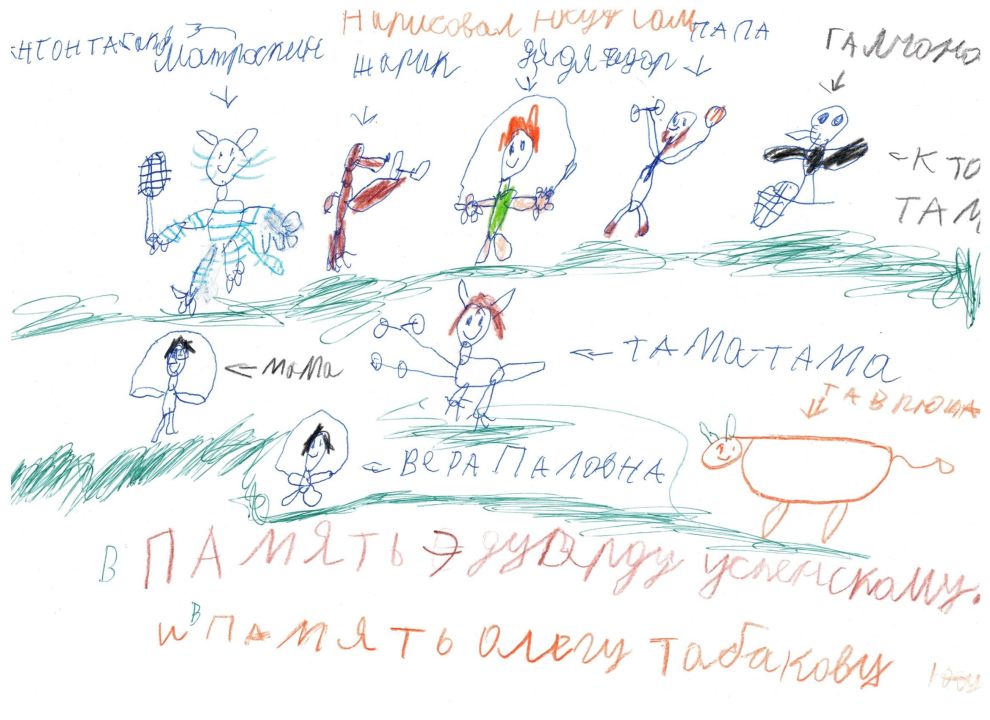 Нарисовал
Матроскин
шарик
дядя Фёдор
папа
ГАЛЧОНО
К ТО
ТАМ
мама
ТАМА-ТАМА
ГАВРЮША
ВЕРА ПАЛОВНА
В ПАМЯТЬ ЭдуАрду успенскому.
и В ПАМЯТЬ Олегу Табакову